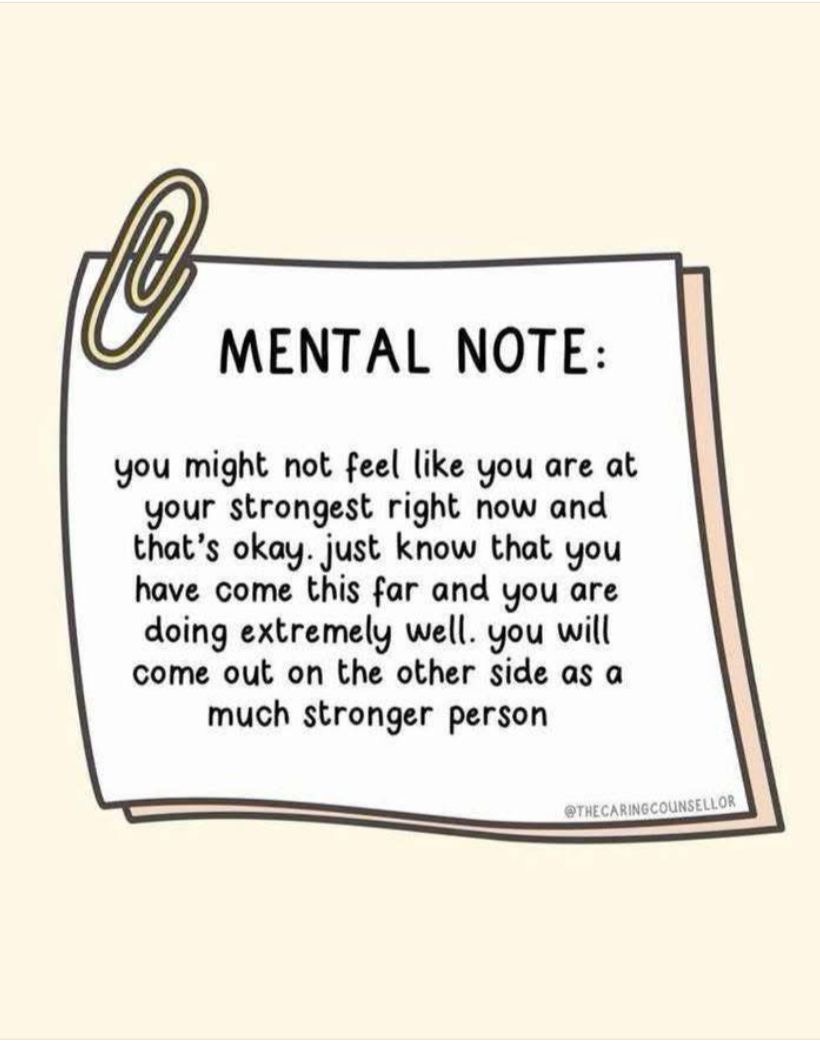 MENTAL NOTE:
you might not feel like you are at
your strongest right now and
that's okay. just know that you
have come this far and you are
doing extremely well. you will
come out on the other side as a
much stronger person
@THECARINGCOUNSELLOR